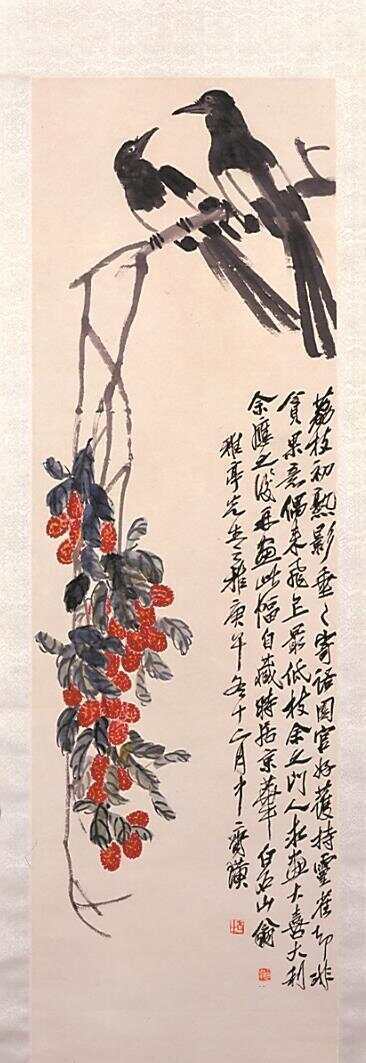 荔枝初熟影垂〻寄語園官好護持靈雀却非
貪果意偶來飛上最低枝余之門人求畫大喜大利
余應之後再畫此幅自藏時居京華白石山翁
雅亭先生庚午冬十二月中齊璜